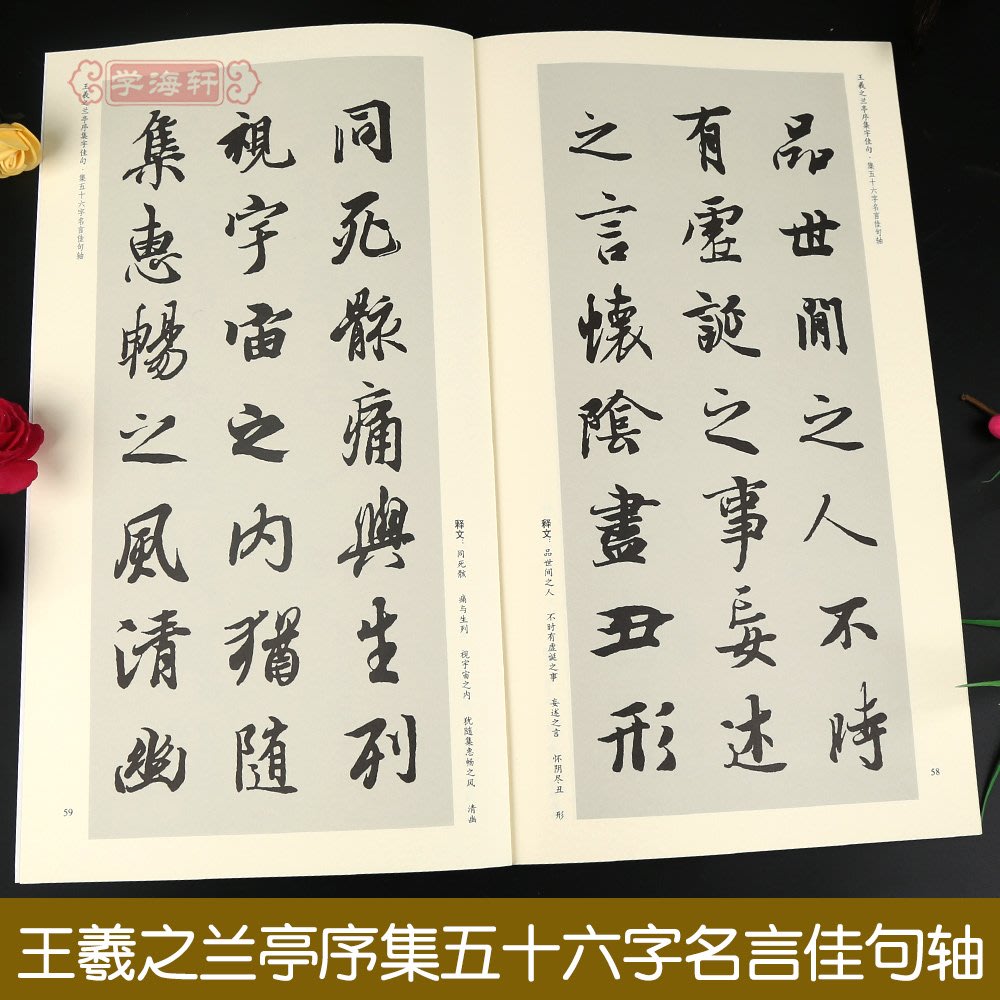 学海轩
王羲之兰亭序集字佳句·集五十六字名言佳句轴
品世間之人不時
有虛誕之事妄述
之言懷陰盡丑形
释文：品世间之人 不时有虚诞之事 妄述之言 怀阴尽丑 形
58
同死骸痛與生列
視宇宙之内猶随
集惠暢之風清幽
释文：同死骸 痛与生列 视宇宙之内 犹随集惠畅之风 清幽
王羲之兰亭序集字佳句·集五十六字名言佳句轴
59
王羲之兰亭序集五十六字名言佳句轴